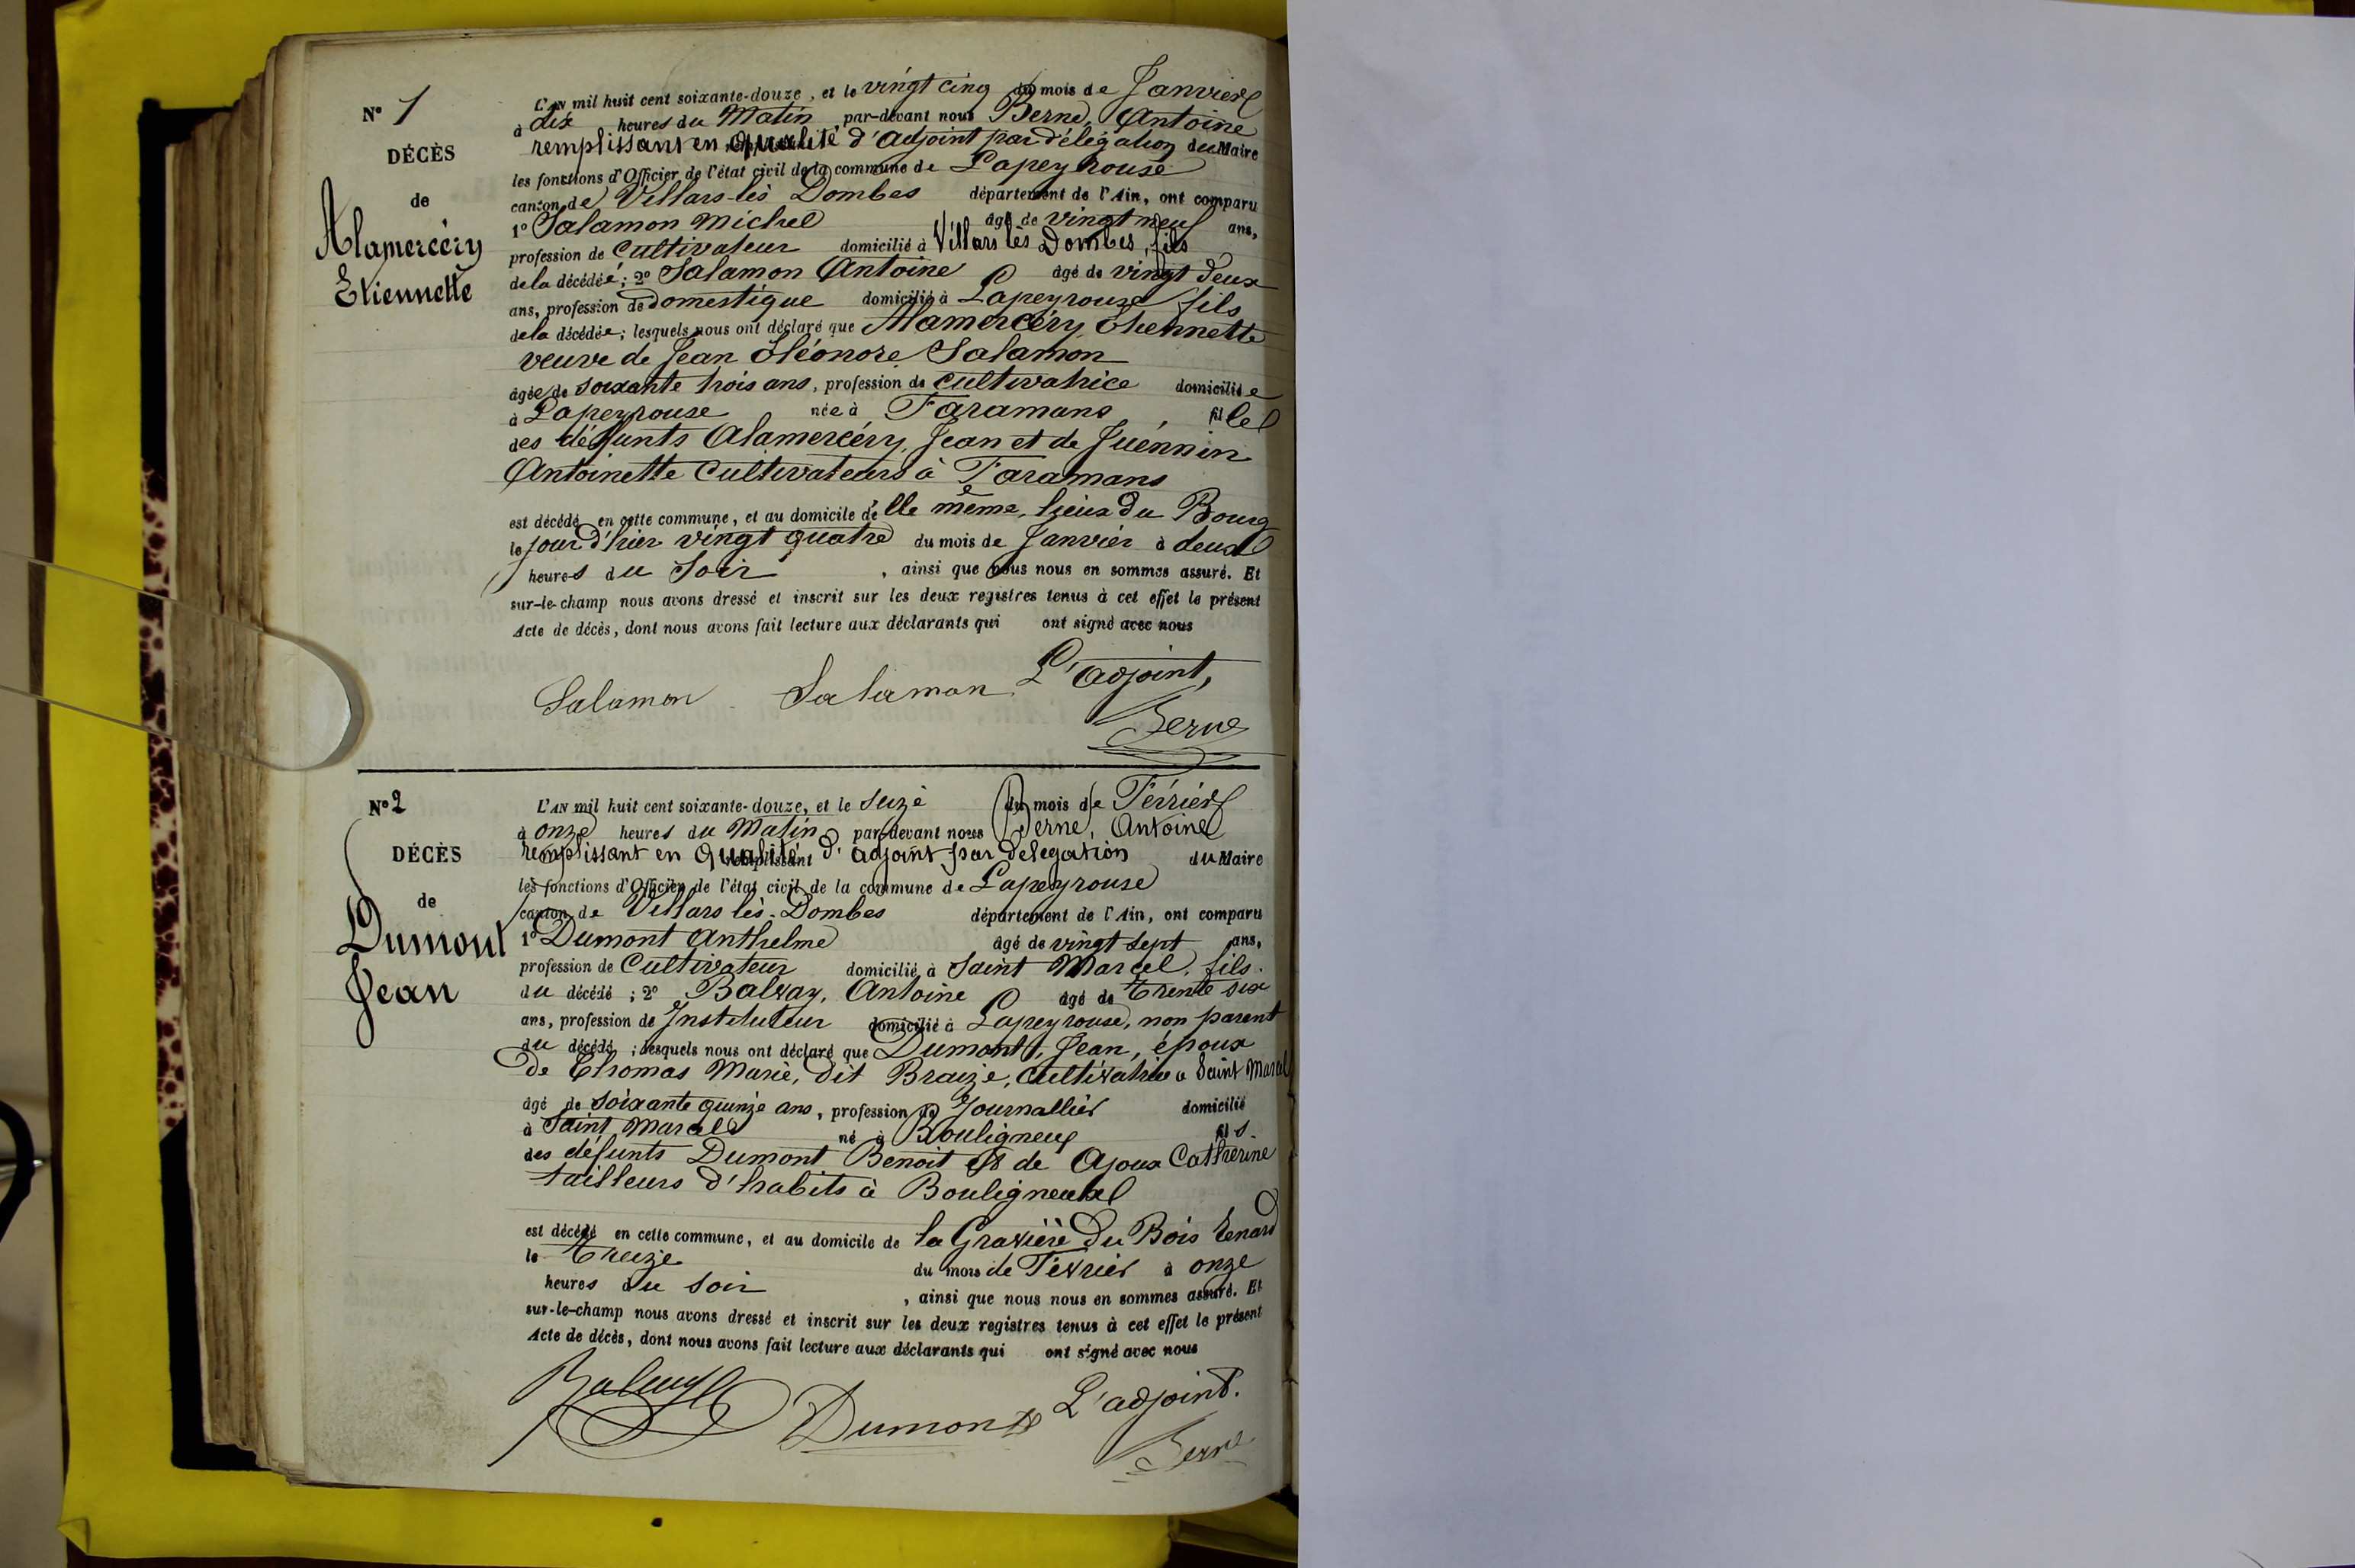 N° 1
DÉCÈS
de
Alamercéry
Etiennette
L'AN mil huit cent soixante-douze, et le vingt cinq du mois de Janvier
à dix heures du Matin par-devant nous Berne, Antoine
remplissant en qualité d'adjoint par délégation du Maire
les fonctions d'Officier de l'état civil de la commune de Lapeyrouse
canton de Villars-lès Dombes département de l'Ain, ont comparu
1° Salamon Michel âgé de vingt neuf ans,
profession de Cultivateur domicilié à Villars lès Dombes, fils
de la décédée; 2° Salamon Antoine âgé de vingt deux
ans, profession de domestique domicilié à Lapeyrouse fils
de la décédée; lesquels nous ont déclaré que Alamercéry, Etiennette
veuve de Jean Éléonore Salamon
âgée de soixante trois ans, profession de Cultivatrice domiciliée
à Lapeyrouse née à Faramans, fille
des défunts Alamercéry, Jean et de Juénnin
Antoinette Cultivateurs à Faramans
est décédé en cette commune, et au domicile d'elle même, lieux du Bourg
le jour d'hier vingt quatre du mois de Janvier à deux
heures du Soir, ainsi que nous nous en sommes assuré. Et
sur-le-champ nous avons dressé et inscrit sur les deux registres tenus à cet effet le présent
Acte de décès, dont nous avons fait lecture aux déclarants qui ont signé avec nous
Salamon Salamon L'adjoint,
Berne
N° 2
DÉCÈS
de
Dumont
Jean
L'AN mil huit cent soixante-douze, et le seize du mois de Février
à onze heures du Matin par-devant nous Berne, Antoine
remplissant en qualité d'adjoint par délégation du Maire
les fonctions d'Officier de l'état civil de la commune de Lapeyrouse
canton de Villars lès-Dombes département de l'Ain, ont comparu
1° Dumont Anthelme âgé de vingt sept ans,
profession de Cultivateur domicilié à Saint Marcel, fils
du décédé; 2° Balvay, Antoine âgé de Trente six
ans, profession de Instituteur domicilié à Lapeyrouse, non parent
du décédé; lesquels nous ont déclaré que Dumont, Jean, époux
de Thomas Marie, dit Braize, Cultivatrice a Saint Marcel
âgé de soixante quinze ans, profession de Journallier domicilié
à Saint Marcel né à Bouligneux fils
des défunts Dumont Benoit et de Ajoux Catherine
tailleurs d'habits à Bouligneux
est décédé en cette commune, et au domicile de la Gravière du Bois Renard
le Treize du mois de Février à onze
heures du Soir, ainsi que nous nous en sommes assuré. Et
sur-le-champ nous avons dressé et inscrit sur les deux registres tenus à cet effet le présent
Acte de décès, dont nous avons fait lecture aux déclarants qui ont signé avec nous
Balvay Dumont L'adjoint.
Berne